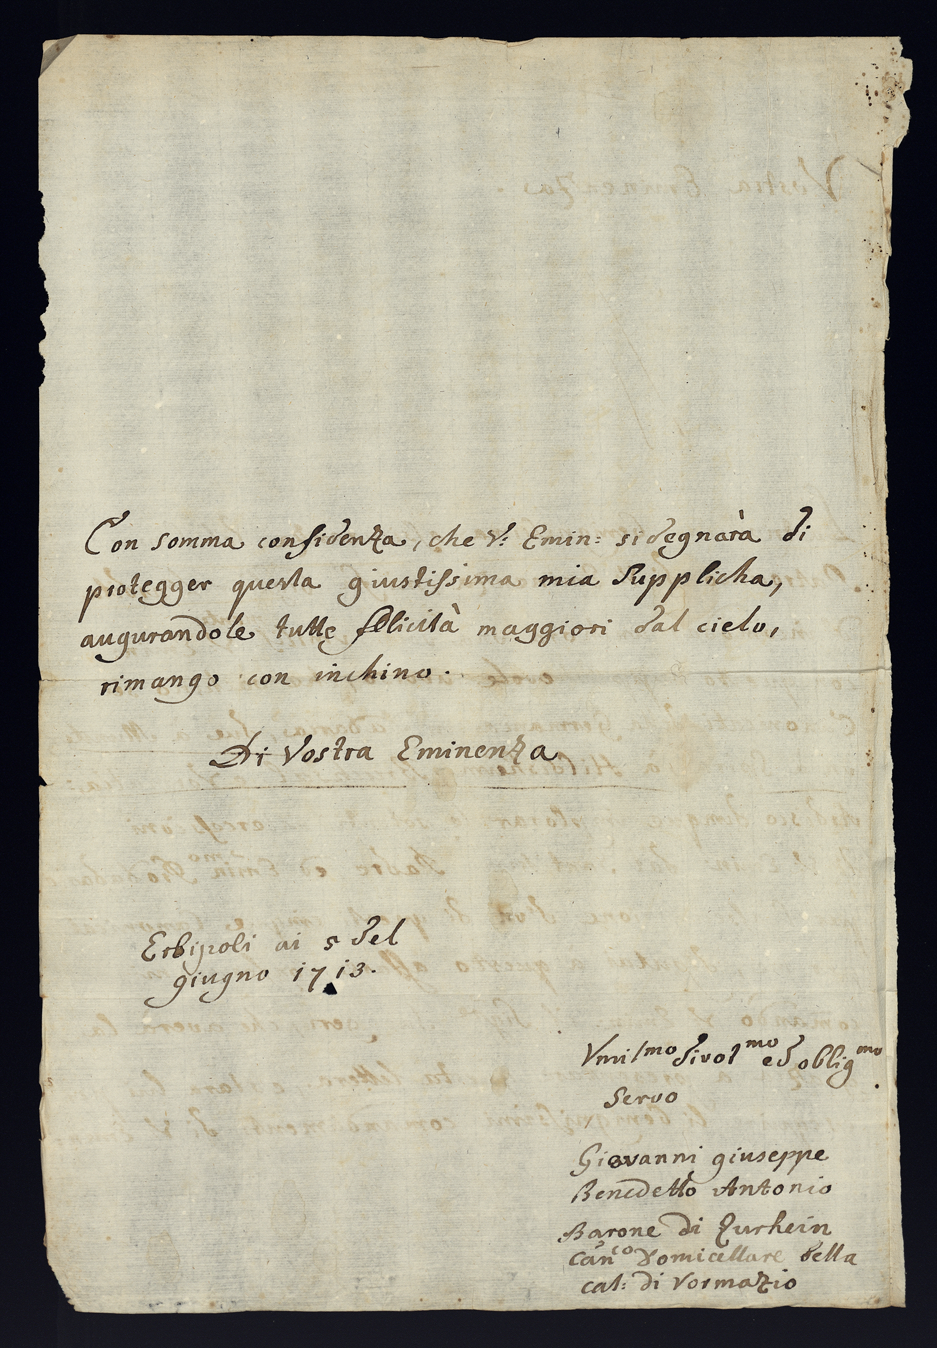 Con somma confidenza, che V: Emin: si degnarà di
protegger questa giustissima mia Supplicha,
augurandole tutte felicità maggiori dal cielo,
rimango con inchino.
Di Vostra Eminenza
Erbipoli ai 5 del
giugno 1713.
Vmilmo divotmo ed obligmo
Servo
Giovanni giuseppe
Benedetto Antonio
Barone di Zurhein
Canco Domicellare della
cat: di Vormazio